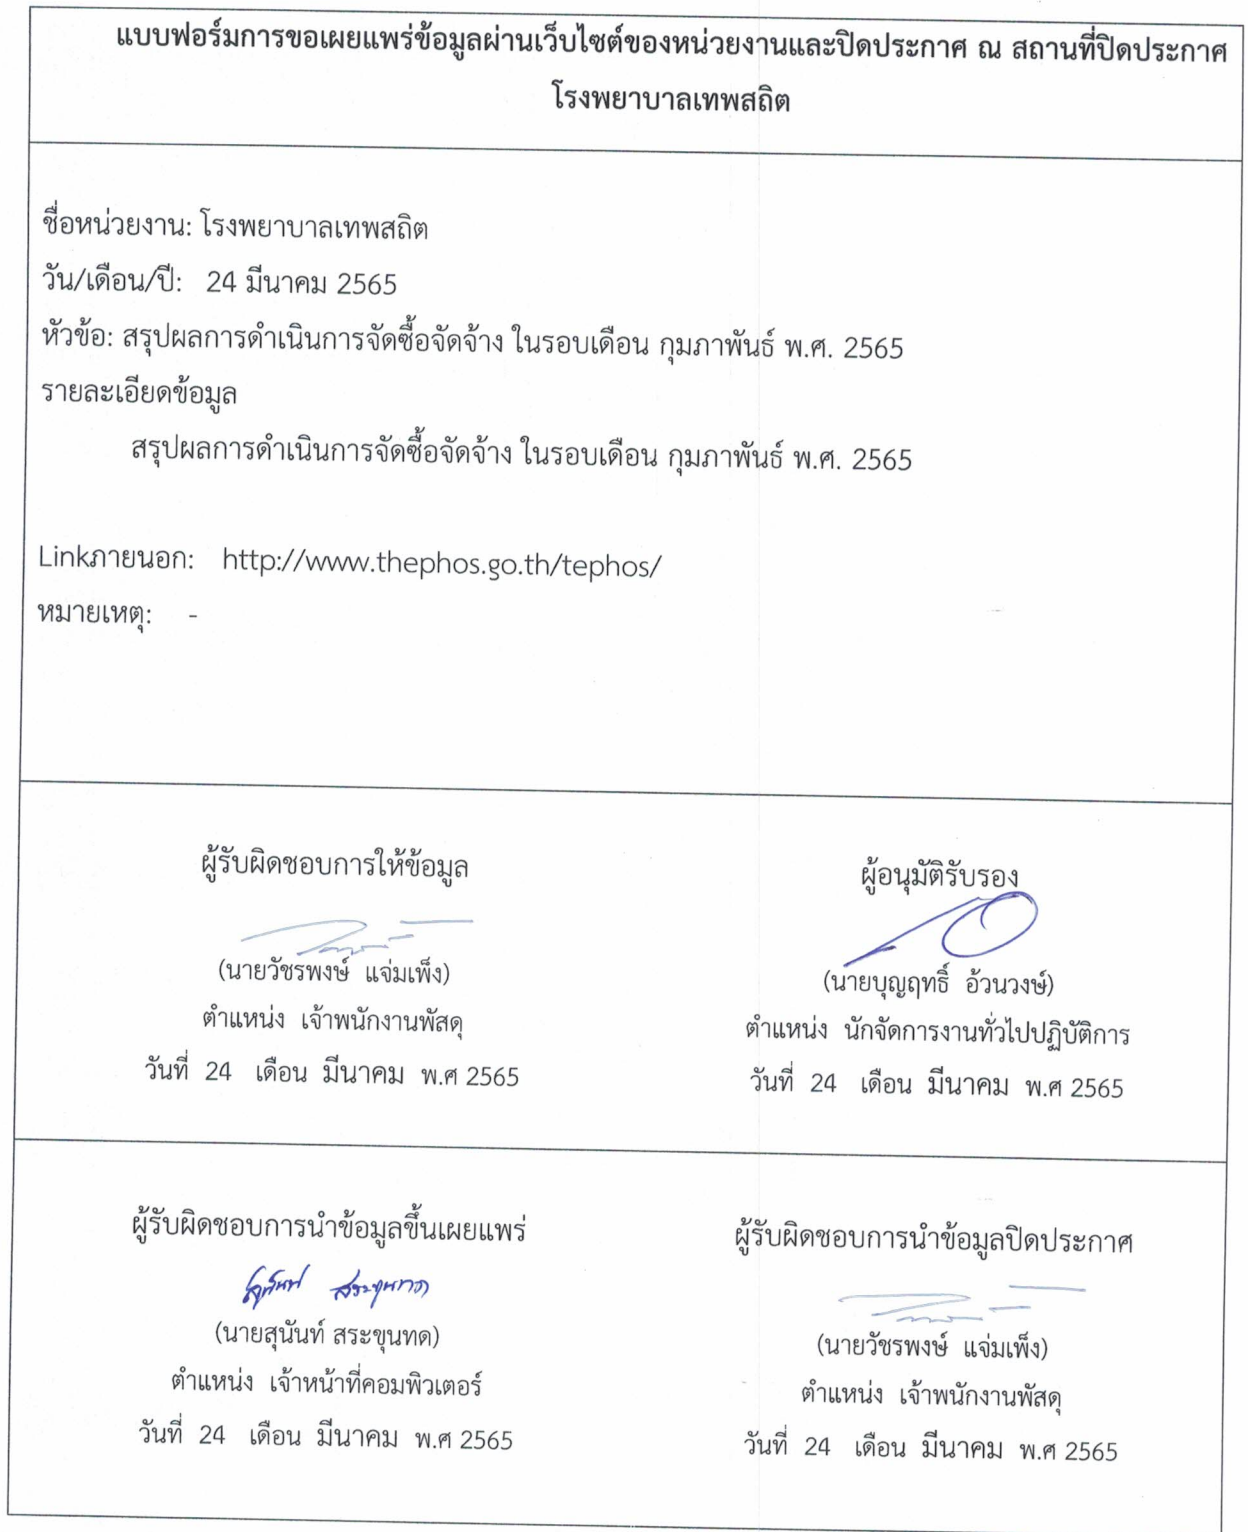 แบบฟอร์มการขอเผยแพร่ข้อมูลผ่านเว็บไซต์ของหน่วยงานและปิดประกาศ ณ สถานที่ปิดประกาศ
โรงพยาบาลเทพสถิต
ชื่อหน่วยงาน: โรงพยาบาลเทพสถิต
วัน/เดือน/ปี: 24 มีนาคม 2565
หัวข้อ: สรุปผลการดำเนินการจัดซื้อจัดจ้าง ในรอบเดือน กุมภาพันธ์ พ.ศ. 2565
รายละเอียดข้อมูล
สรุปผลการดำเนินการจัดซื้อจัดจ้าง ในรอบเดือน กุมภาพันธ์ พ.ศ. 2565
Linkภายนอก: http://www.thephos.go.th/tephos/
หมายเหตุ: -
ผู้รับผิดชอบการให้ข้อมูล
(นายวัชรพงษ์ แจ่มเพ็ง)
ตำแหน่ง เจ้าพนักงานพัสดุ
วันที่ 24 เดือน มีนาคม พ.ศ 2565
ผู้อนุมัติรับรอง
(นายบุญฤทธิ์ อ้วนวงษ์)
ตำแหน่ง นักจัดการงานทั่วไปปฏิบัติการ
วันที่ 24 เดือน มีนาคม พ.ศ 2565
ผู้รับผิดชอบการนำข้อมูลขึ้นเผยแพร่
สุนันท์ สระขุนทด
(นายสุนันท์ สระขุนทด)
ตำแหน่ง เจ้าหน้าที่คอมพิวเตอร์
วันที่ 24 เดือน มีนาคม พ.ศ 2565
ผู้รับผิดชอบการนำข้อมูลปิดประกาศ
(นายวัชรพงษ์ แจ่มเพ็ง)
ตำแหน่ง เจ้าพนักงานพัสดุ
วันที่ 24 เดือน มีนาคม พ.ศ 2565